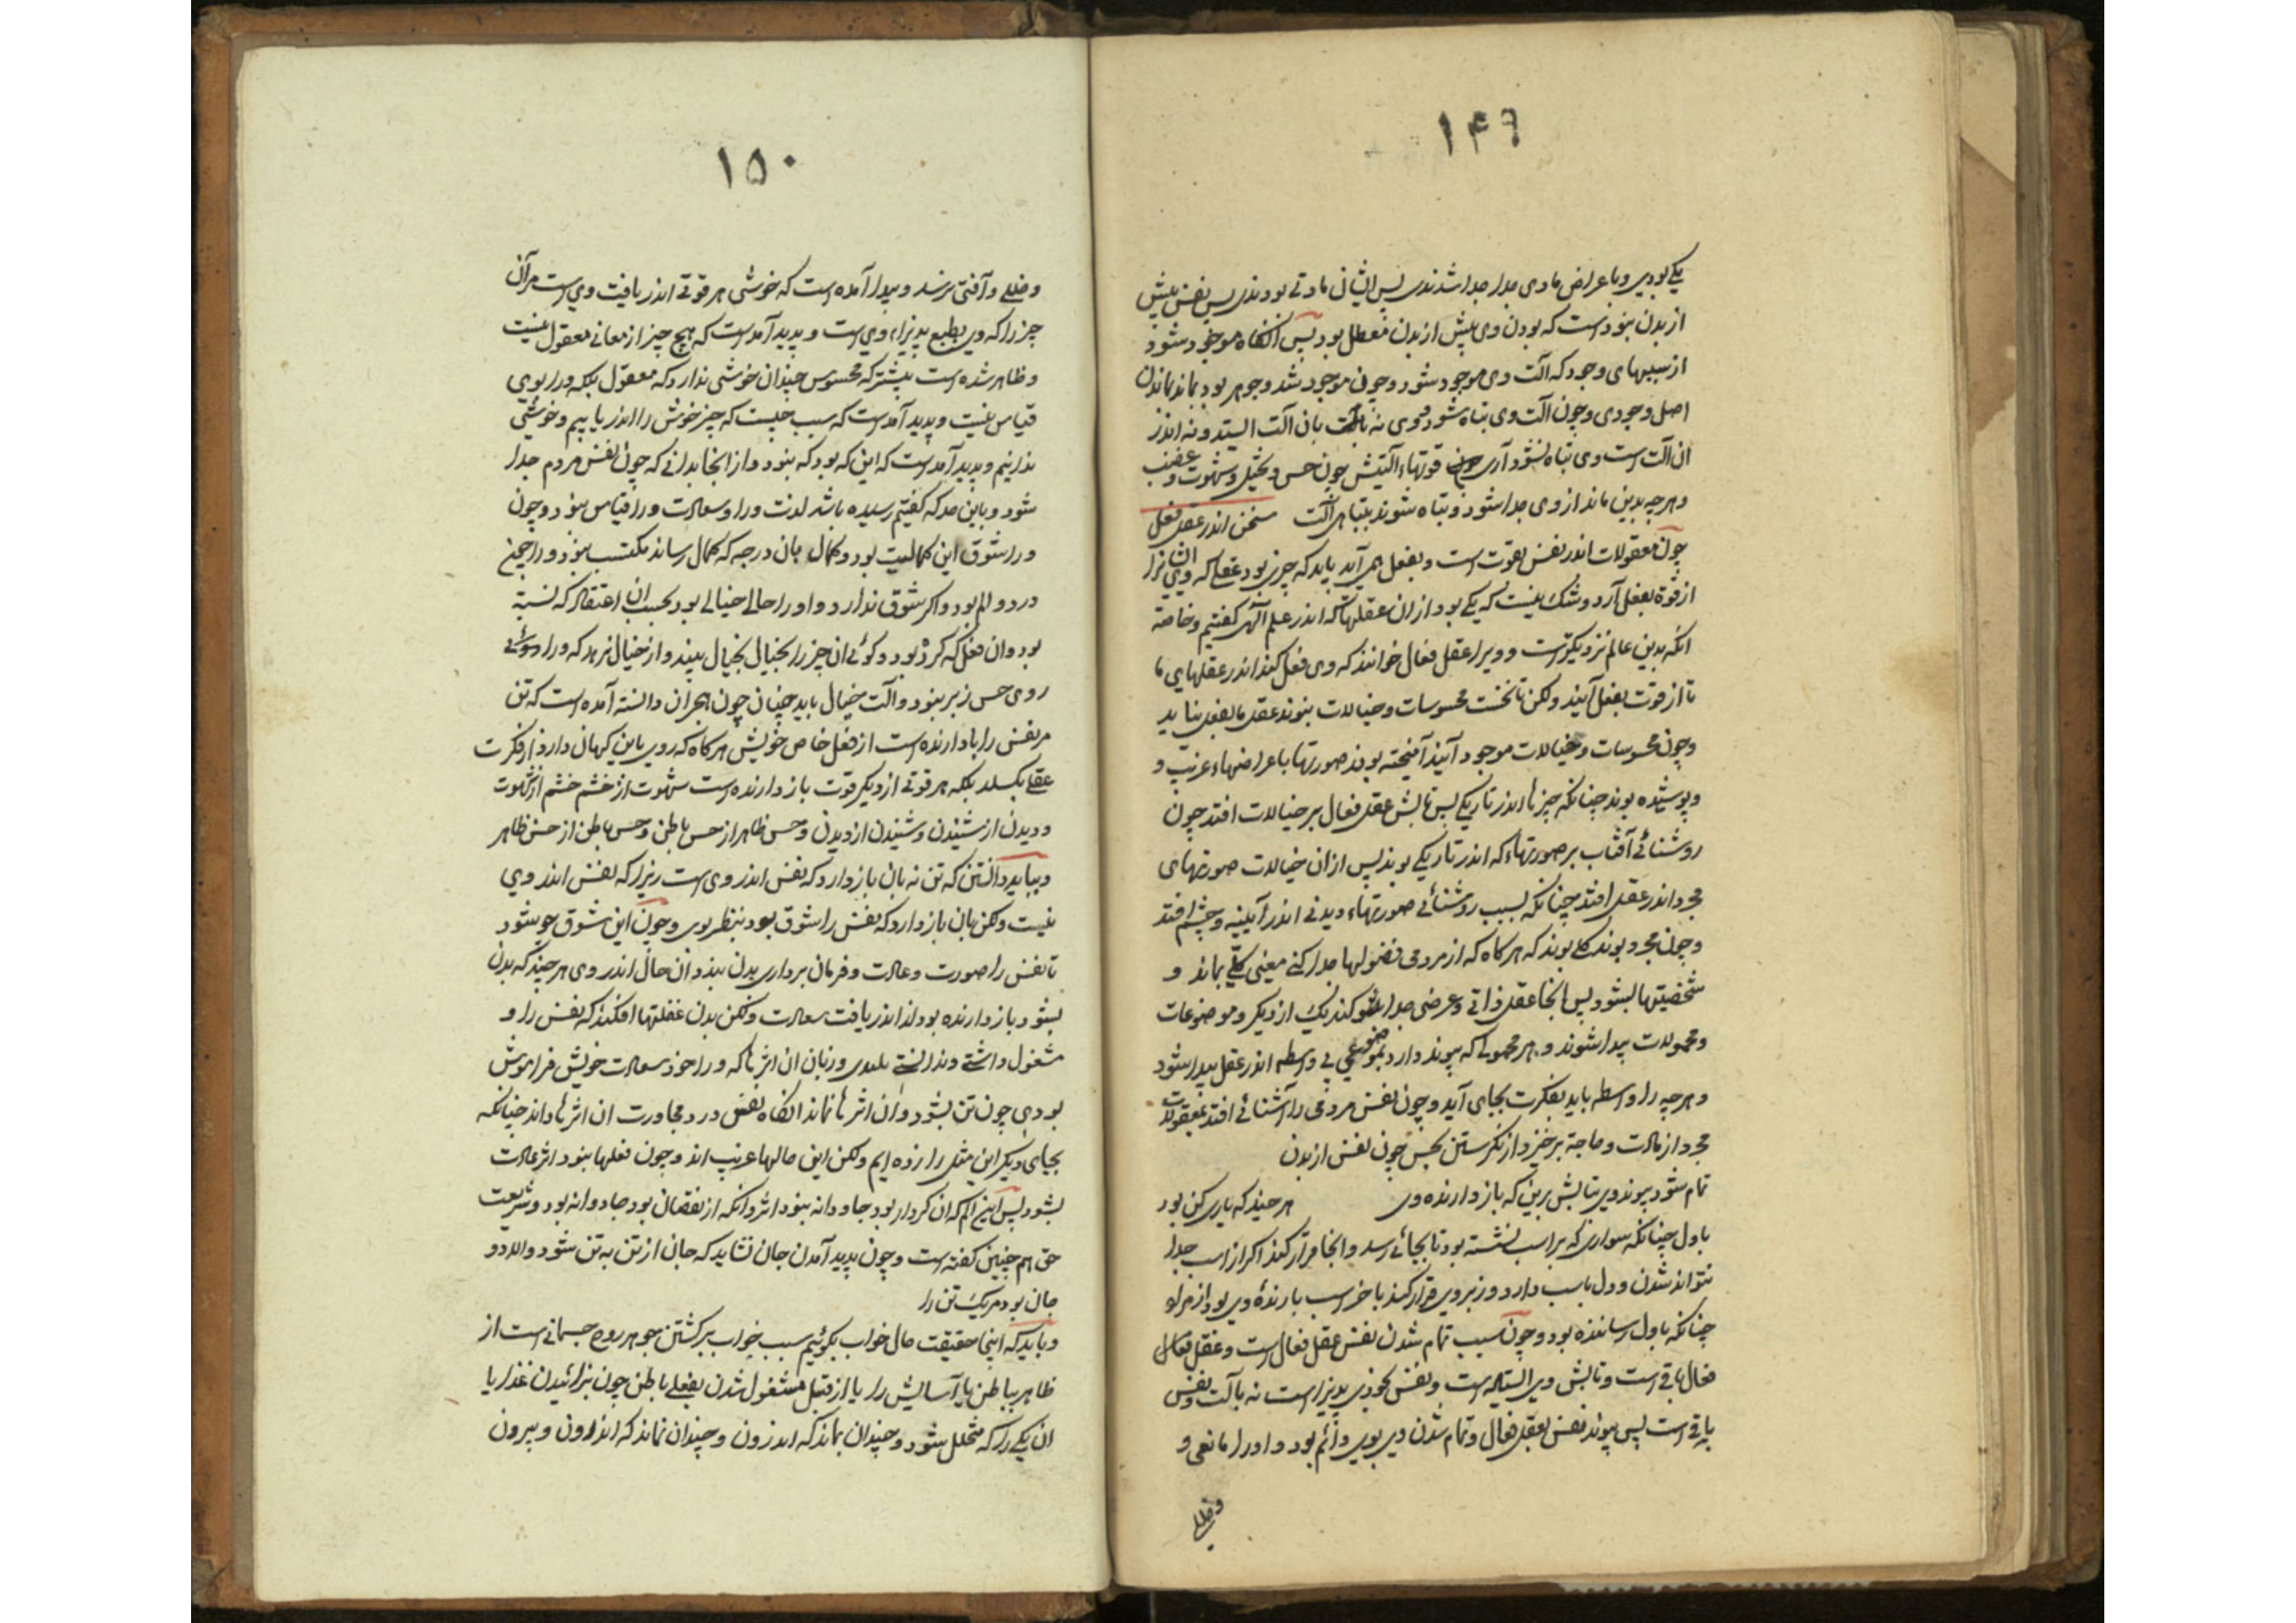 ۱۴۹
یکی بودی و باعراض مادی جدا جدا شدندی پس ایشان مادتی بودندی پس نفس پیش
از بدن نبوده است که بودن وی پیش از بدن معطل بود پس آنگاه موجود شود
از سببهای وجود که آلت وی موجود شود و چون موجود شد و جوهر بود بماند بماندن
اصل وجودی و چون آلت وی تباه شود وی نه بان آلت ایستد و نه اندر
ان آلت است وی تباه نشود آری قوتهاء آلتیش چون حس و تخیل و شهوت و غضب
و هرچه بدین ماند از وی جدا شود و تباه شوند بتباهی آلت سخن اندر عقل فعل
چون معقولات اندر نفس بقوت است و بفعل همی آید باید که چیزی بود عقلی که وی ایشانرا
از قوة بفعل آرد و شک نیست که یکی بود از ان عقلها که اندر علم الهی گفتیم و خاصه
انکه بدین عالم نزدیکتر است و ویرا عقل فعال خوانند که وی فعل کند اندر عقلهای ما
تا از قوت بفعل آیند ولکن تا نخست محسوسات و خیالات نبوند عقل ما بفعل نیاید
و چون محسوسات و خیالات موجود آیند آمیخته بوند صورتها باعراضهاء غریب و
و پوشیده بوند چنانکه چیزها اندر تاریکی پس تابش عقل فعال بر خیالات افتد چون
روشنائی آفتاب بر صورتهاء که اندر تاریکی بوند پس از ان خیالات صورتهای
مجرد اندر عقل افتد چنانکه بسبب روشنائی صورتهاء دیدنی اندر آیینه و چشم افتد
و چون مجرد بوند کلی بوند که هرکاه که از مردمی فضولها جدا کنی معنی کلی بماند و
شخصیتها بشود پس انجا عقل ذاتی و عرضی جدا کند یک از دیگر و موضوعات
و محمولات پیدا شوند و هر محمولی که پیوند دارد بموضوعی بی واسطه اندر عقل پیدا شود
و هرچه را واسطه باید بفکرت بجای آید و چون نفس مردمی را آشنائی افتد بمعقولات
مجرد از مادت و حاجة برخیزد از نگرستن بحس چون نفس از بدن
تمام شود پیوند وی بتابش برین که باز دارنده وی هرچند که یاری کن بود
باول چنانکه سواری که بر اسب نشسته بود تا بجائی رسد و انجا قرار کند اکر از اسب جدا
نتواند شدن و دل باسب دارد و زبر وی قرار کند باخر اسب بازدارندۀ وی بود از مراد
چنانکه باول رساننده بود و چون سبب تمام شدن نفس عقل فعال است و عقل فعال
فعال باقی است و تابش وی ایستاده است و نفس بخودی پذیرا است نه بآلت و نفس
باقی است پس پیوند نفس بعقل فعال و تمام شدن وی بوی دائم بود و اورا مانعی و
وخللی
۱۵۰
وخللی و آفتی نرسد و پیدا آمده است که خوشی هر قوتی اندر یافت وی است مر آن
چیز را که وی بطبع پذیراء وی است و پدید آمده است که هیچ چیز از معانی معقول نیست
و ظاهر شده است بیشتر که محسوس چندان خوشی ندارد که معقول بلکه ورا بوی
قیاس نیست و پدید آمده است که سبب چیست که چیز خوش را اندر یابیم و خوشی
ندانیم و پدید آمده است که این که بود که نبود و از انجا بدانی که چون نفس مردم جدا
شود و باین حد که گفتیم رسیده باشد لذت ورا و سعادت ورا قیاس نبود و چون
ورا شوق این کمالیت بود و کمال بان درجه که کمال رساند مکتسب نبود ورا همچنین
درد و الم بود و اکر شوق ندارد و او را حالی خیالی بود بحسب ان اعتقاد که نسبة
بود وان فعل که کرده بود و گوئی ان چیز را بخیال بخیال بیند و از خیال نرهد که ورا
روی حس زبر نبود و آلت خیال باید چنان چون اجران دانسته آمده است که تن
مر نفس را بادارنده است از فعل خاص خویش هرکاه که روی باین کیهان دارد از فکرت
عقلی بکسلد بلکه هر قوتی از دیگر قوت بازدارنده است شهوت از خشم خشم از شهوت
و دیدن از شنیدن و شنیدن از دیدن و حس ظاهر از حس باطن و حس باطن از حس ظاهر
و بباید دانستن که تن نه بان بازدارد که نفس اندر وی است زیرا که نفس اندر وی
نیست ولکن بان بازدارد که نفس را شوق بود بنظر بوی و چون این شوق خو شود
تا نفس را صورت و عادت و فرمان برداری بدن بیند و ان حال اندر وی هرچند که بدن
بشود بازدارنده بود از اندر یافت سعادت ولکن بدن غفلتها افکند که نفس را و
مشغول داشتی و ندانستی پلیدی و زیان ان اثرها که ورا خود سعادت خویش فراموش
بودی چون تن بشود و ان اثرها نماند انگاه نفس درد مجاورت ان اثرها داند چنانکه
بجای دیگر این مثل را زده ایم ولکن این حالها غریب اند و چون فعلها نبود اثر عادت
بشود پس این الم که ان کردار بود جاودانه نبود اثر و انکه از نقصان بود جاودانه بود و شریعت
حق هم چنین گفته است و چون پدید آمدن جان نشاید که جان از تن به تن شود والا دو
جان بود مر یک تن را
و باید که اینجا حقیقت حال خواب بگوئیم سبب خواب برگشتن جوهر روح جسمانی است از
ظاهر بباطن یا آسایش را یا از قبل مشغول شدن بفعلی باطن چون گزارئیدن غذا را یا
ان یکی را که متحلل شود و چندان بماند که اندرون و چندان نماند که اندرون و بیرون